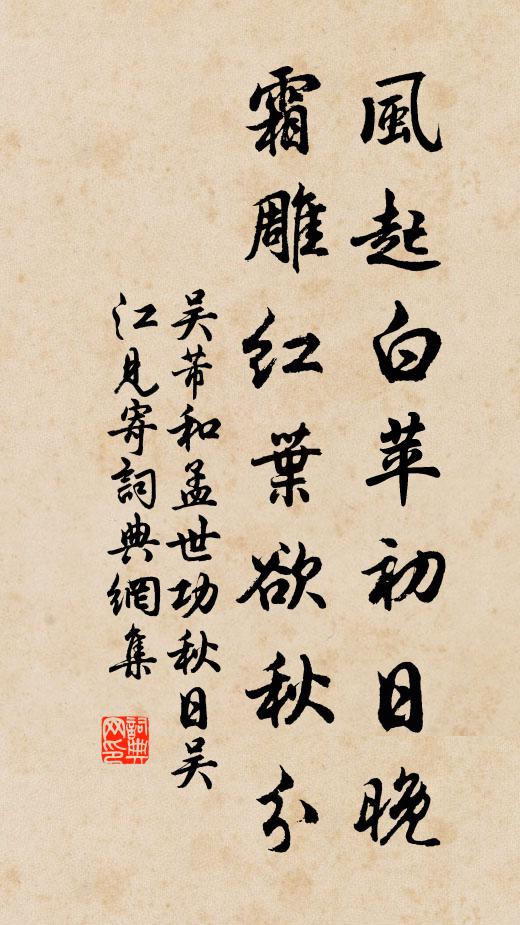 風起白苹初日晚
霜雕紅葉欲秋分
吴芾和孟世功秋日吴
江見寄詞典網集
詞典
网印